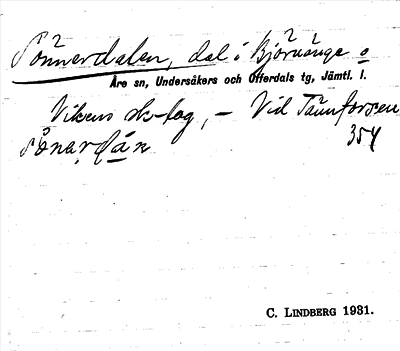 Sönnerdalen, dal i Björnänge o
Åre sn, Undersåkers och Offerdals tg, Jämtl. l.
Vikens sk-lag, – Vid Tännforsen
354
C. Lindberg 1931.